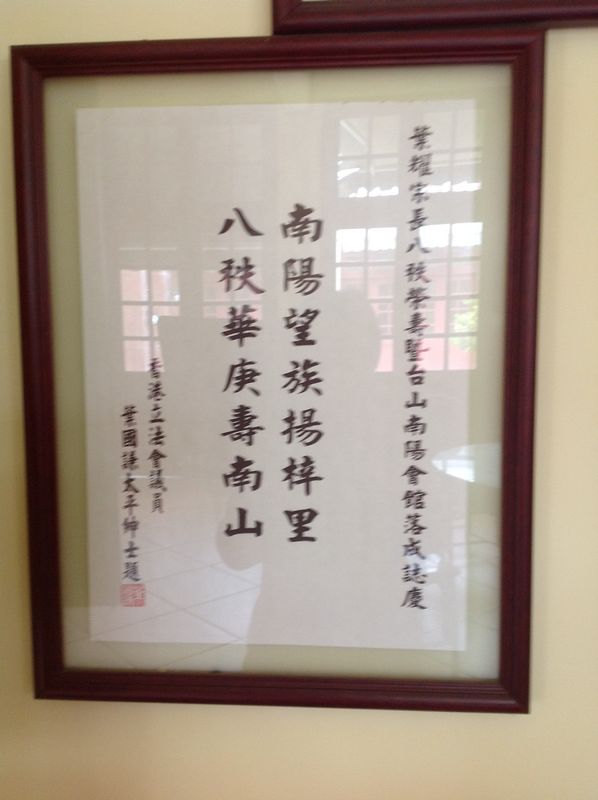 葉耀宗長八秩榮壽暨台山南陽會館落成誌慶
南陽望族揚梓里
八秩華庚壽南山
香港立法會議員
葉國謙太平紳士題